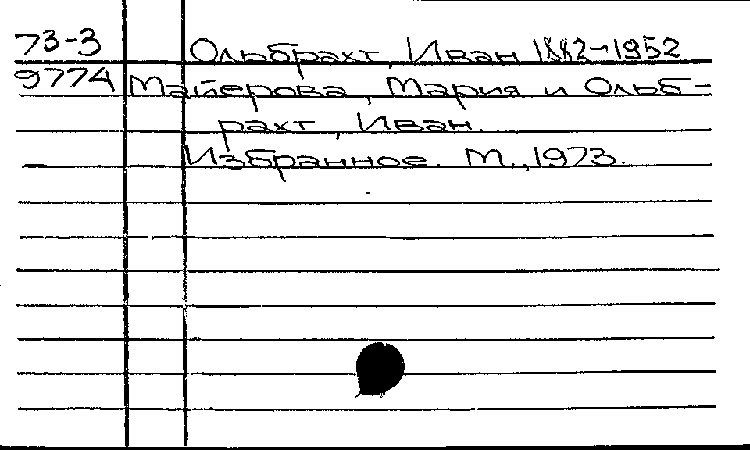 73-3 Ольбрахт, Иван 1882-1952
9774 Майерова, Мария и Ольб-
рахт, Иван.
Избранное. М., 1973.